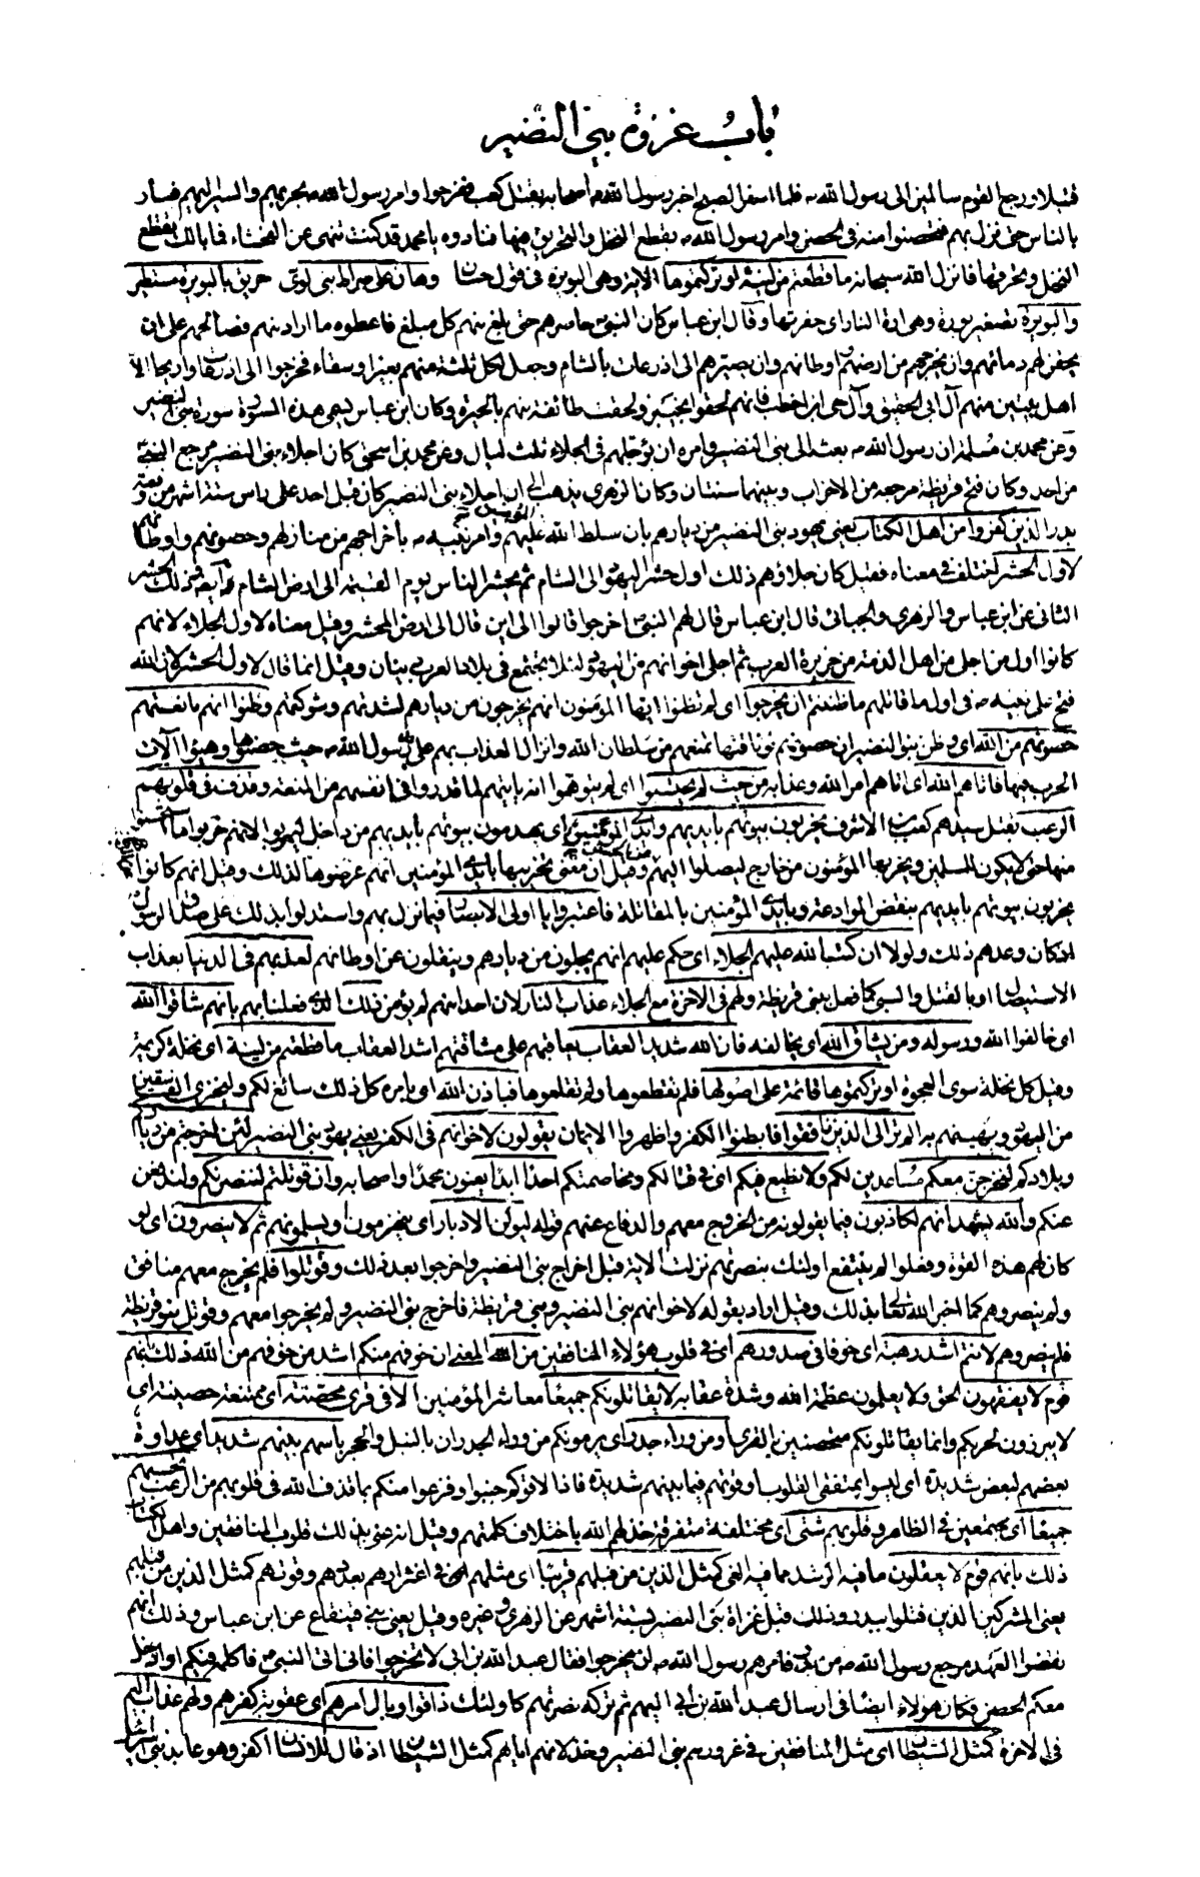 باب غزوة بني النضير
قتيلا ورجع القوم سالمين الى رسول الله ص فلما اسفر الصبح اخبر رسول الله ص اصحابه بقتل كعب ففرحوا وامر رسول الله ص بحربهم والسير اليهم فسار
بالناس حتى نزل بهم فتحصنوا منه في الحصن وامر رسول الله ص بقطع النخل والتحريق فيها فنادوه يا محمد قد كنت تنهى عن الفحشاء فما بالك تقطع
النخل وتحرقها فانزل الله سبحانه ما قطعتم من لينة او تركتموها الاية وهي البويرة في قول حسان وهان على سراة بني لوى حريق بالبويرة مستطير
والبويرة تصغير بورة وهي ارة النار اى حفرتها وقال ابن عباس كان النبي ص حاصرهم حتى بلغ منهم كل مبلغ فاعطوه ما اراد منهم فصالحهم على ان
يحقن لهم دمائهم وان يخرجهم من ارضهم واوطانهم وان يصيرهم الى اذرعات بالشام وجعل لكل ثلثة منهم بعيرا وسقاء فخرجوا الى اذرعات واريحا الا
اهل بيتين منهم آل ابي الحقيق وآل حي ابن اخطب فانهم لحقوا بخيبر ولحقت طائفة منهم بالحيرة وكان ابن عباس يسمى هذه السورة سورة بني النضير
وعن محمد بن مسلمة ان رسول الله ص بعثه الى بني النضير وامره ان يؤجلهم في الجلاء ثلث ليال وعن محمد بن اسحق كان اجلاء بني النضير مرجع النبي ص
من احد وكان فتح قريظة مرجعه من الاحزاب وبينهما سنتان وكان الزهري يذهب الى ان اجلاء بني النضير كان قبل احد على راس ستة اشهر من وقعة
بدر الذين كفروا من اهل الكتاب يعني يهود بني النضير من ديارهم بان سلط الله المؤمنين عليهم وامر نبيه ص باخراجهم من منازلهم وحصونهم واوطانهم
لاول الحشر اختلف في معناه فقيل كان جلاؤهم ذلك اول حشر اليهود الى الشام ثم يحشر الناس يوم القيمة الى ارض الشام ايضا وذلك الحشر
الثاني عن ابن عباس والزهري والجبائي قال ابن عباس قال لهم النبي ص اخرجوا قالوا الى اين قال الى ارض المحشر وقيل معناه لاول الجلاء لانهم
كانوا اول من اجلى من اهل الذمة من جزيرة العرب ثم اجلى اخوانهم من اليهود لئلا يجتمع في بلاد العرب دينان وقيل انما قال لاول الحشر لان الله
فتح على نبيه ص في اول ما قاتلهم ما ظننتم ان يخرجوا اى لم تظنوا ايها المؤمنون انهم يخرجون من ديارهم لشدتهم وشوكتهم وظنوا انهم مانعتهم
حصونهم من الله اى وظن بنو النضير ان حصونهم لوثاقتها تمنعهم من سلطان الله وانزال العذاب بهم على يد رسول الله ص حيث حصنوها وهيئوا آلات
الحرب فيها فاتاهم الله اى اتاهم امر الله وعذابه من حيث لم يحتسبوا اى لم يتوهموا انه ياتيهم لما قدروا في انفسهم من المنعة وقذف في قلوبهم
الرعب بقتل سيدهم كعب بن الاشرف يخربون بيوتهم بايديهم وايدى المؤمنين اى يهدمون بيوتهم بايديهم من داخل ليهربوا لانهم خربوا ما استحسنوا
منها حتى لا يكون للمسلمين ويخربها المؤمنون من خارج ليصلوا اليهم وقيل ان معنى تخريبها بايدى المؤمنين انهم عرضوها لذلك وقيل انهم كانوا
يخربون بيوتهم بايديهم بنقض الموادعة وبايدى المؤمنين بالمقاتلة فاعتبروا يا اولى الابصار فيما نزل بهم واستدلوا بذلك على صدق الرسول
اذ كان وعدهم ذلك ولولا ان كتب الله عليهم الجلاء اى حكم عليهم انهم يجلون من ديارهم وينقلون عن اوطانهم لعذبهم في الدنيا بعذاب
الاستيصال او بالقتل والسبي كما فعل ببني قريظة ولهم في الاخرة مع الجلاء عذاب النار لان احدا منهم لم يؤمن ذلك الذي فعلنا بهم بانهم شاقوا الله
اى خالفوا الله ورسوله ومن يشاق الله اى يخالفه فان الله شديد العقاب يعاقبهم على مشاقتهم اشد العقاب ما قطعتم من لينة اى نخلة كريمة
وقيل كل نخلة سوى العجوة او تركتموها قائمة على اصولها فلم تقطعوها ولم تقلعوها فباذن الله اى بامره كل ذلك سائغ لكم وليخزى الفاسقين
من اليهود ويهينهم به الم تر الى الذين نافقوا فابطنوا الكفر واظهروا الايمان يقولون لاخوانهم في الكفر يعني يهود بني النضير لئن اخرجتم من دياركم
وبلادكم لنخرجن معكم مساعدين لكم ولا نطيع فيكم اى في قتالكم ومخاصمتكم احدا ابدا يعنون محمدا واصحابه وان قوتلتم لننصرنكم ولندفعن
عنكم والله يشهد انهم لكاذبون فيما يقولونه من الخروج معهم والدفاع عنهم قوله ليولن الادبار اى ينهزمون ويسلمونهم ثم لا ينصرون اى لو
كان لهم هذه القوة وفعلوا لم ينتفع اولئك بنصرتهم نزلت الاية قبل اخراج بني النضير واخرجوا بعد ذلك وقوتلوا فلم يخرج معهم منافق
ولم ينصروهم كما اخبر الله تعالى بذلك وقيل اراد بقوله لاخوانهم بني النضير وبني قريظة فاخرج بنو النضير ولم يخرجوا معهم وقوتل بنو قريظة
فلم ينصروهم لانتم اشد رهبة اى خوفا في صدورهم اى في قلوب هؤلاء المنافقين من الله المعنى ان خوفهم منكم اشد من خوفهم من الله ذلك بانهم
قوم لا يفقهون الحق ولا يعلمون عظمة الله وشدة عقابه لا يقاتلونكم جميعا معاشر المؤمنين الا في قرى محصنة اى ممتنعة حصينة اى
لا يبرزون لحربكم وانما يقاتلونكم متحصنين بالقرى او من وراء جدر اى يرمونكم من وراء الجدران بالنبل والحجر باسهم بينهم شديد اى عداوة
بعضهم لبعض شديدة اى ليسوا بمتفقى القلوب او قوتهم فيما بينهم شديدة فاذا لاقوكم جبنوا وفزعوا منكم بما قذف الله في قلوبهم من الرعب تحسبهم
جميعا اى مجتمعين في الظاهر وقلوبهم شتى اى مختلفة متفرقة خذلهم الله باختلاف كلمتهم وقيل انه عنى بذلك قلوب المنافقين واهل الكتاب
ذلك بانهم قوم لا يعقلون ما فيه الرشد مما فيه الغى كمثل الذين من قبلهم قريبا اى مثلهم في اغترارهم بعددهم وقوتهم كمثل الذين من قبلهم
يعنى المشركين الذين قتلوا ببدر وذلك قبل غزاة بني النضير بستة اشهر عن الزهري وغيره وقيل يعني بني قينقاع عن ابن عباس وذلك انهم
نقضوا العهد مرجع رسول الله ص من بدر فامرهم رسول الله ص ان يخرجوا فقال عبد الله بن ابي لا تخرجوا فاني اتى النبي ص فاكلمه فيكم او ادخل
معكم الحصن فكان هؤلاء ايضا في ارسال عبد الله بن ابي اليهم ثم تركه نصرتهم كاولئك ذاقوا وبال امرهم اى عقوبة كفرهم ولهم عذاب اليم
في الاخرة كمثل الشيطان اى مثل المنافقين في غرورهم بني النضير وخذلانهم اياهم كمثل الشيطان اذ قال للانسان اكفر وهو عابد بني اسرائيل